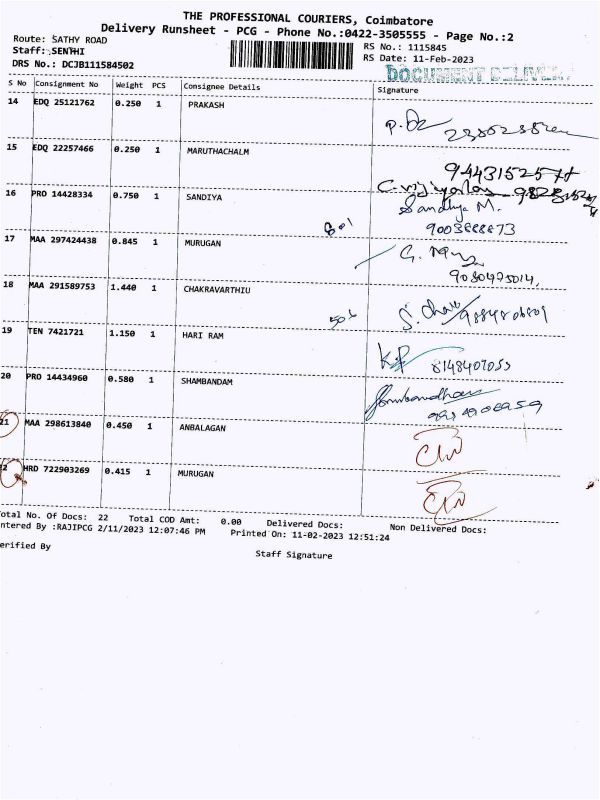 THE PROFESSIONAL COURIERS, Coimbatore
Delivery Runsheet - PCG - Phone No.:0422-3505555 - Page No.:2
Route: SATHY ROAD
RS No.: 1115845
Staff: SENTHI
RS Date: 11-Feb-2023
DRS No.: DCJB111584502
DOCUMENT DELIVERY
S No Consignment No Weight PCS Consignee Details Signature
14 EDQ 25121762 0.250 1 PRAKASH
15 EDQ 22257466 0.250 1 MARUTHACHALM
16 PRO 14428334 0.750 1 SANDIYA Sandhya M.
17 MAA 297424438 0.845 1 MURUGAN
9080475014,
18 MAA 291589753 1.440 1 CHAKRAVARTHIU
506
19 TEN 7421721 1.150 1 HARI RAM
8148407053
20 PRO 14434960 0.580 1 SHAMBANDAM
21 MAA 298613840 0.450 1 ANBALAGAN
HRD 722903269 0.415 1 MURUGAN
Total No. Of Docs: 22 Total COD Amt: 0.00 Delivered Docs: Non Delivered Docs:
Entered By :RAJIPCG 2/11/2023 12:07:46 PM Printed On: 11-02-2023 12:51:24
Verified By Staff Signature